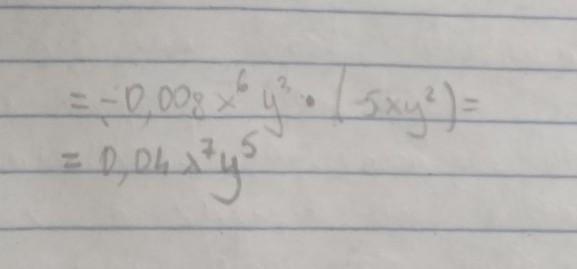 = -0,008x⁶y³ · (-5xy²) =
= 0,04x⁷y⁵